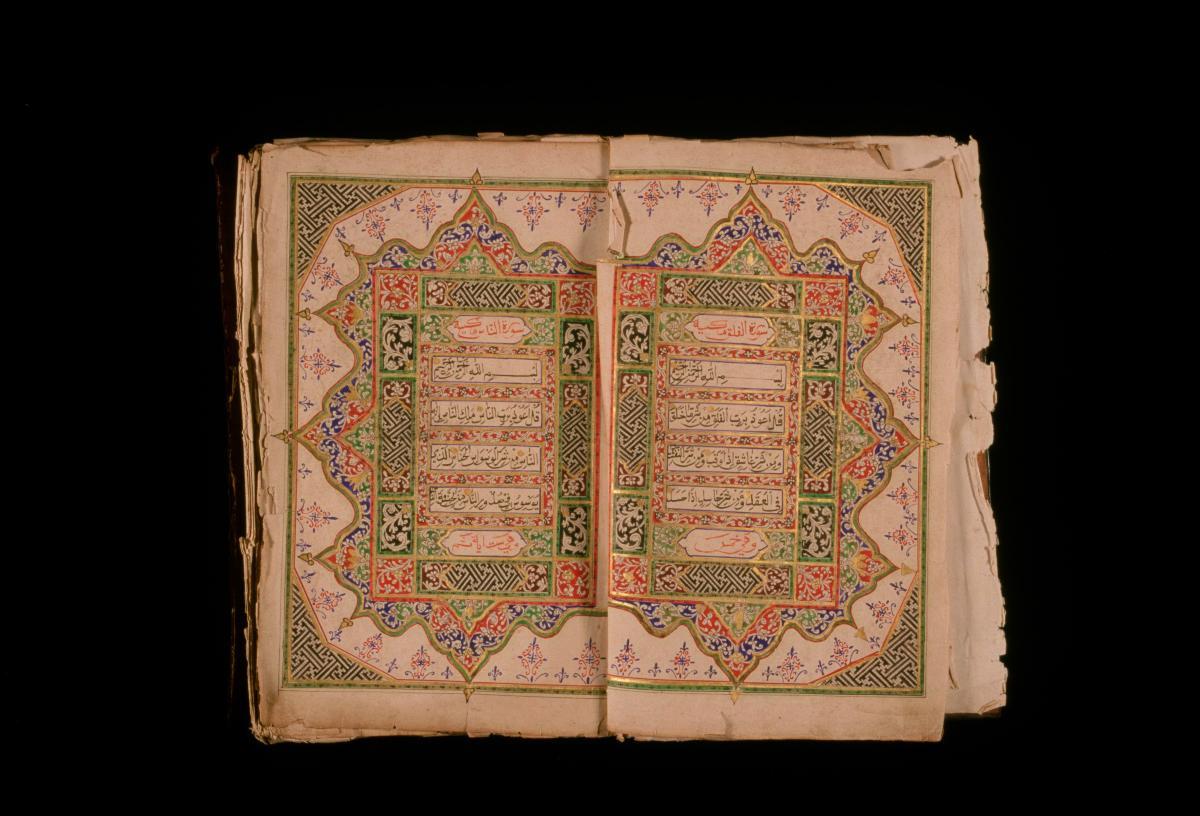 سورة الفلق مكية
بسم الله الرحمن الرحيم
قل اعوذ برب الفلق من شر ما خلق
ومن شر غاسق اذا وقب ومن شر النفثت
في العقد ومن شر حاسد اذا حسد
سورة الناس مكية
بسم الله الرحمن الرحيم
قل اعوذ برب الناس ملك الناس اله
الناس من شر الوسواس الخناس الذى
يوسوس في صدور الناس من الجنة والناس
وهي ست ايات